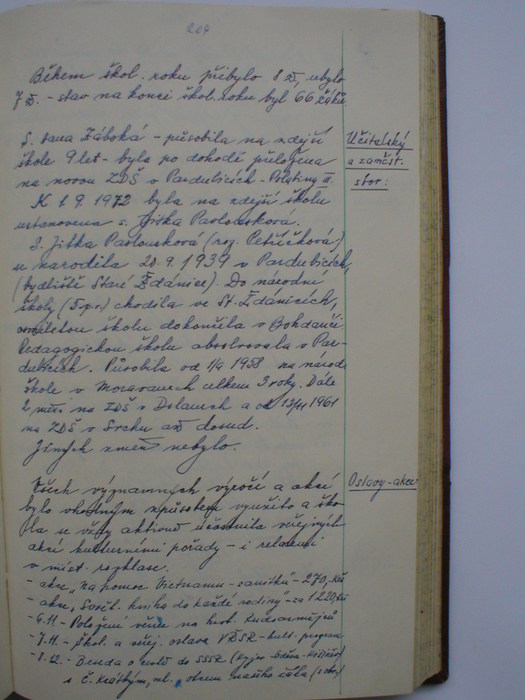 204
Během škol. roku přibylo 8 ž., ubylo
7 ž. - stav na konci škol. roku byl 66 žáků
S. Hana Záboká - působila na zdejší
škole 9 let - byla po dohodě přeložena
na novou ZDŠ v Pardubicích - Polabiny II.
K 1. 9. 1972 byla na zdejší školu
ustanovena s. Jitka Pavlousková.
S. Jitka Pavlousková (roz. Petříčková)
se narodila 20. 9. 1939 v Pardubicích,
(bydliště Staré Ždánice). Do národní
školy (5 p.r.) chodila ve St. Ždánicích,
osmiletou školu dokončila v Bohdanči
Pedagogickou školu absolvovala v Par-
dubicích. Působila od 1/9 1958 na národ.
škole v Moravanech celkem 3 roky. Dále
2 měs. na ZDŠ v Dolanech a od 13/11 1961
na ZDŠ v Srchu až dosud.
Jiných změn nebylo.
Učitelský
a zaměst.
sbor:
Všech významných výročí a akcí
bylo vhodným způsobem využito a ško-
la se vždy aktivně účastnila veřejných
akcí kulturními pořady - i relacemi
v míst. rozhlase.
- akce "Na pomoc Vietnamu - 270,- Kčs
- akce "Sovět. kniha do každé rodiny" - za 1220,-
- 6.11 - Položení věnce na hrob
- 7.11. - Škol. a veřej. oslava VŘSR - kult. program
- 8.12. - Beseda o cestě do SSSR
s Č. Krátkým, ml., otcem našeho žáka
Oslavy - akce: